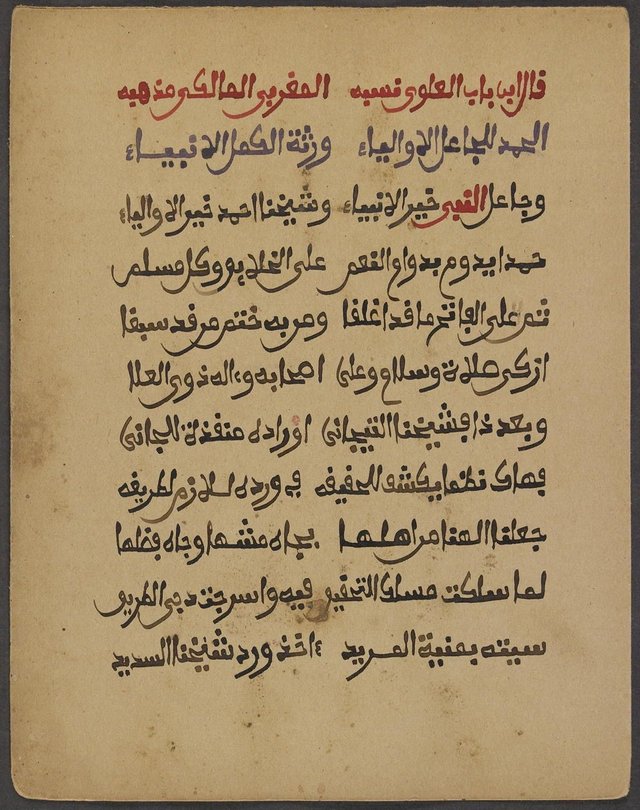 قال ابن باب العلوي نسبه المغربي المالكي مذهبه
الحمد للجاعل الاولياء ورثة الكمل الانبياء
وجاعل النبي خير الانبياء وشيخنا احمد خير الاولياء
حمدا يدوم بدوام النعم على الخلايق وكل مسلم
ثم على الفاتح ما قد اغلقا ومن به ختم من قد سبقا
ازكى صلاة وسلام وعلى اصحابه وءاله ذوي العلا
وبعد ذا فشيخنا التيجاني اوراده منقذة للجاني
فهاك نظما يكشف للحقيقه في ورده اللازم لطريقه
جعلنا الهنا من اهلها بجاه منشها وجاه فضلها
لما سلكت مسلك التحقيق فيه واسرجت دجى الطريق
سميته بمنية المريد ءاخذ ورد شيخنا السديد